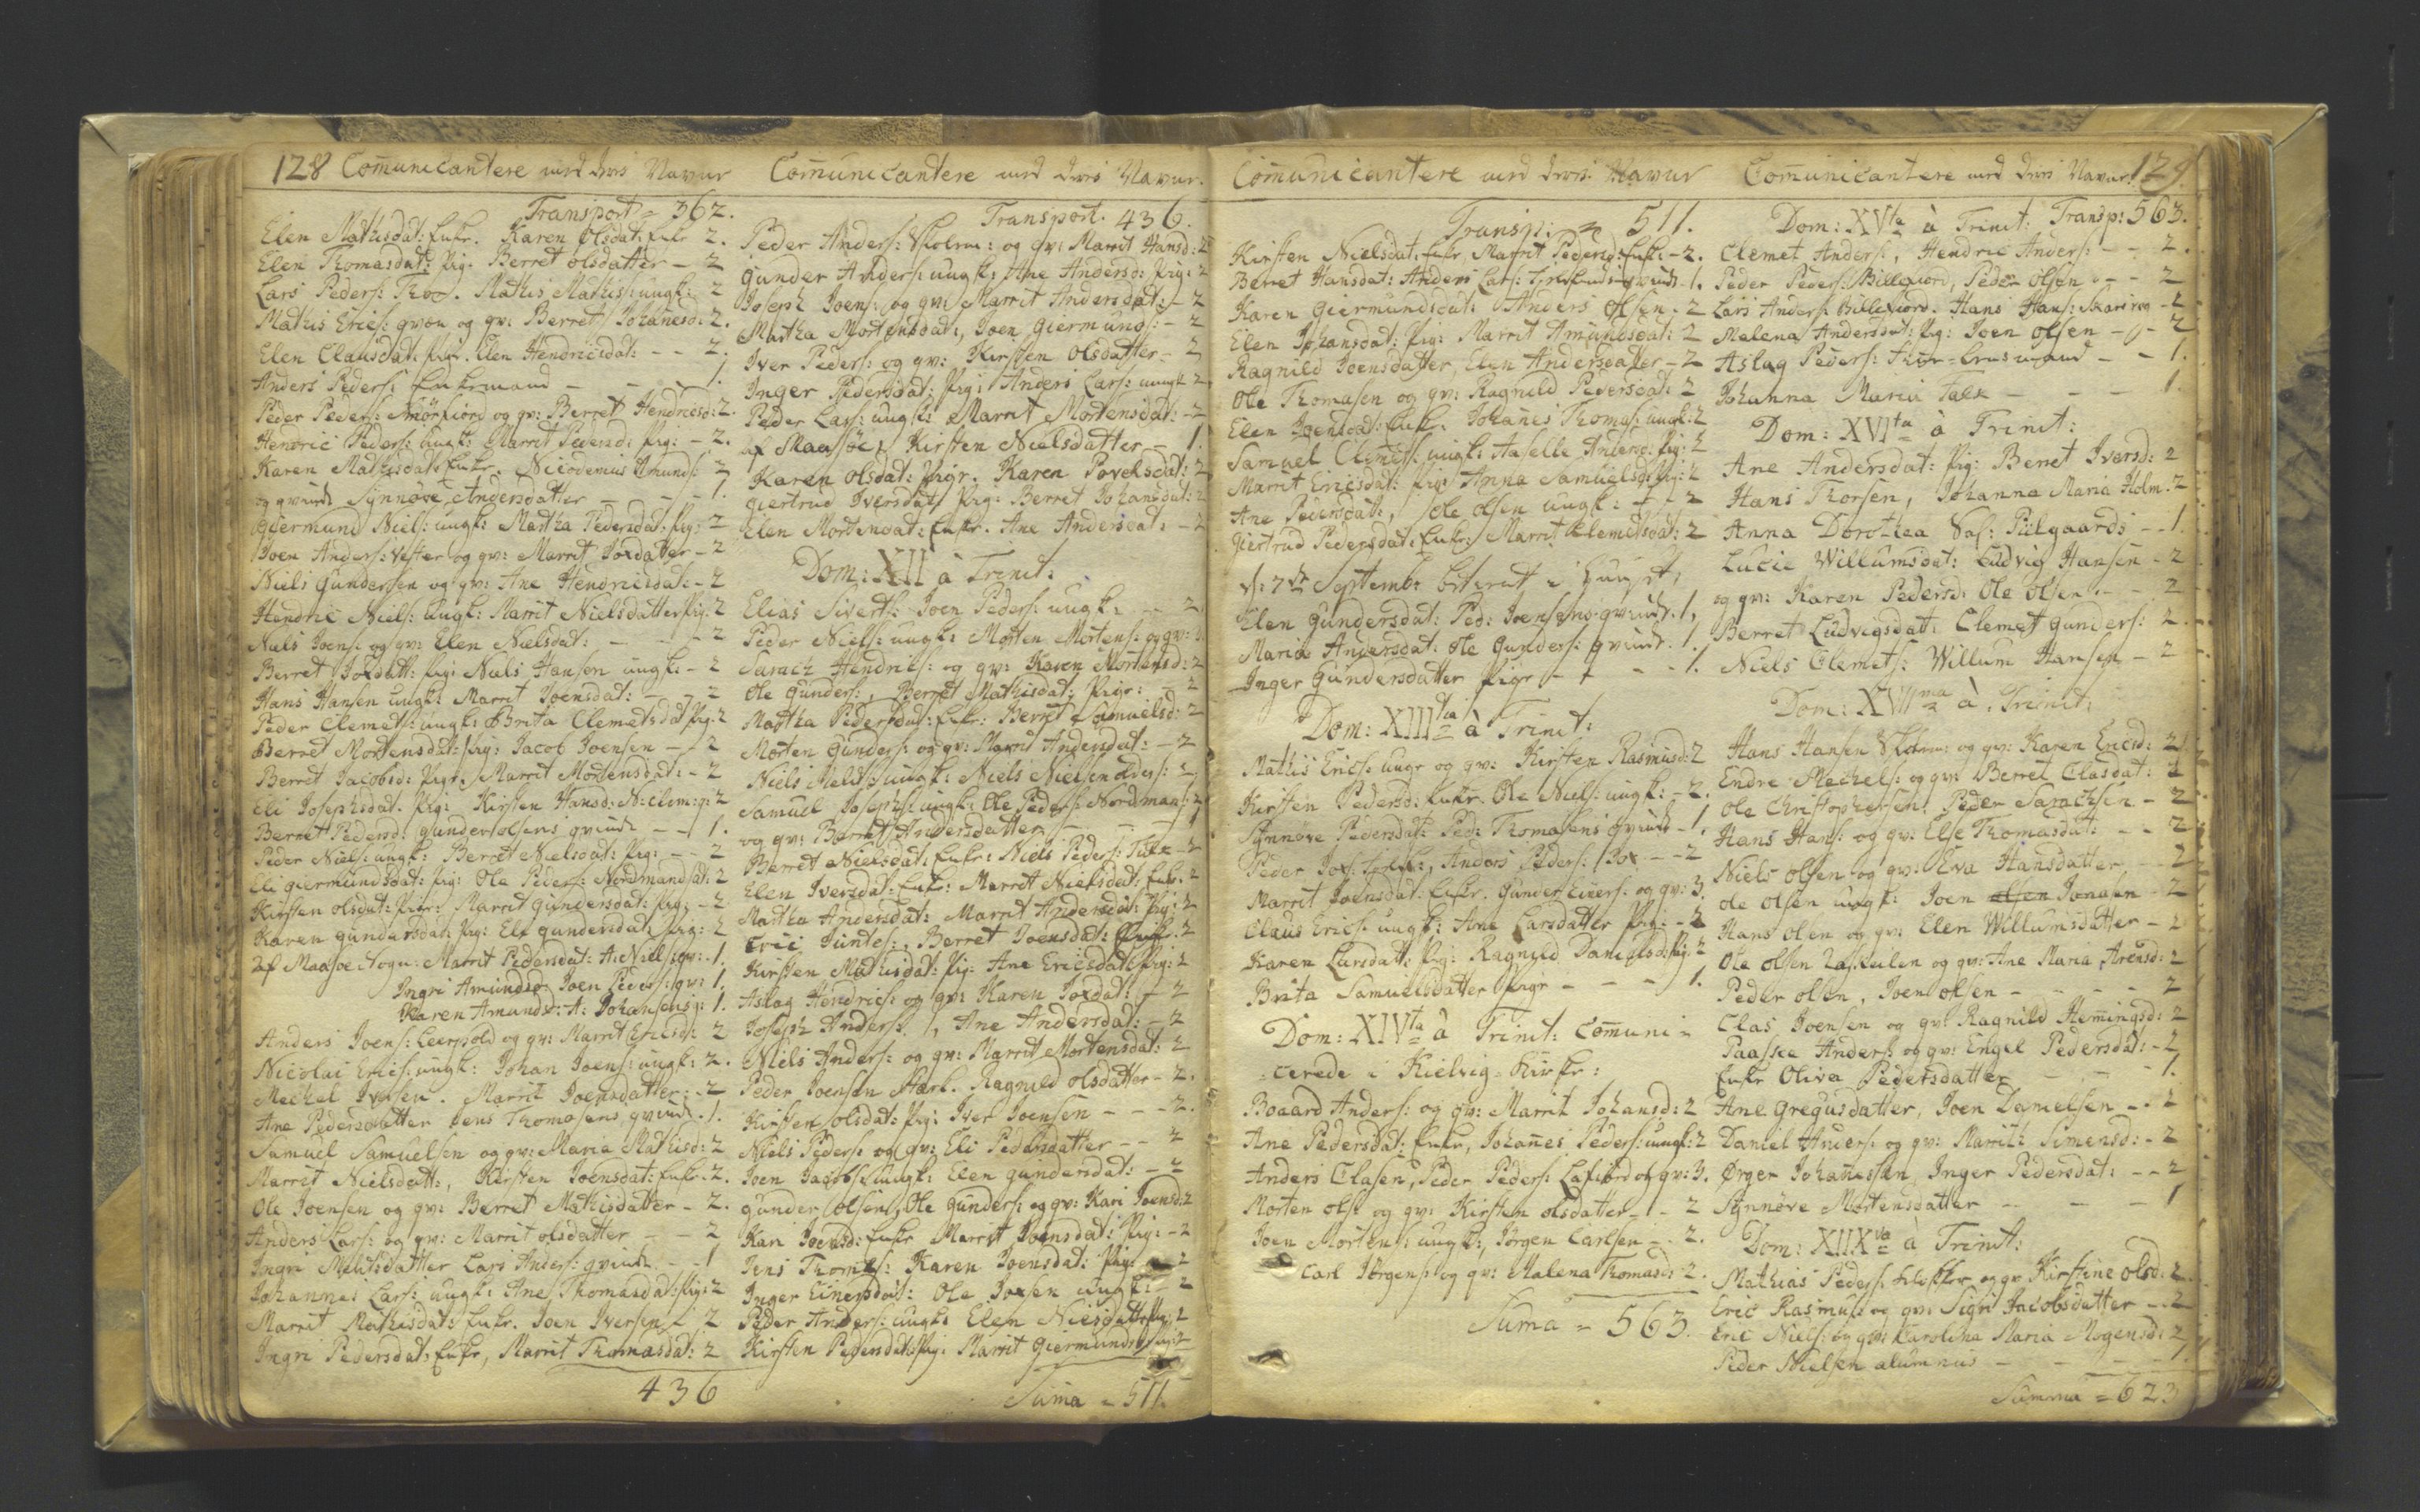 128 Comunicantere med deris Navne
Transport = 362.
Elen Mathisdat: Enke. Karen Olsdat: Enke 2.
Elen Thomasdat: Pig. Berret olsdatter - 2
Lars Peders: Mathis Mathis: ungk: 2
Mathis Erics: og qv: Berret Johanesd: 2.
Elen Clausdat: Pige. Elen Hendricsdat: - - 2.
Anders Peders: Enkemand - - - 1.
Peder Peders: Smörfiord og qv: Berret Hendricsd: 2.
Henric Peders: ungk: Marrit Pedersd: Pig: - 2.
Karen Mathisdat: Enke. Nicodemus Amunds: 2
og qvinde Synnøve Andersdatter - - - 1.
Giermund Niels: ungk: Martha Pedersdat: Pig: 2
Joen Anders: Vester og qv: Marrit Joxdatter - 2
Niels Gundersen og qv: Ane Hendricsdat: - 2
Hendric Niels: ungk: Marrit Nielsdatter Pig: 2
Niels Joens: og qv: Elen Nielsdat: - - - 2
Berret Joxdatt: Pig: Niels Hansen ungk: - 2
Hans Hansen ungk: Marrit Joensdat: - - 2
Peder Clemets: ungk: Brita Clemetsdat Pig: 2
Berret Mortensdat: Pig: Jacob Joensen - - 2
Berret Jacobsd: Pige. Marrit Mortensdat: - 2
Eli Josephsdat. Pig: Kirsten Hansd: N: Clem: q: 2
Berret Pedersd: gunder olsens qvinde - - 1.
Peder Niels: ungk: Berret Nielsdat: Pig: - - 2
Eli giermundsdat: Pig: Ole Peders: Nordmandsat: 2
Kirsten olsdat: Pige: Marrit gundersdat: Pig: - 2
Karen gundersdat: Pig: Els gundersdat: Pig: 2
af Maasøe Sogn: Marrit Pedersdat: A: Niels: qv: 1.
Ingri Amundsd: Joen Peders: qv: 1.
Karen Amundsd: A: Johansens q: 1.
Anders Joens: Leerpold og qv: Marrit Ericsd: 2
Nicolai Erics: ungk: Johan Joens: ungk: 2.
Meckel Iversen. Marrit Joensdatter - 2
Ane Pedersdatter Jens Thomasens qvinde. 1.
Samuel Samuelsen og qv: Maria Mathisd: 2
Marrit Nielsdatt:, Kirsten Joensdat: Enke. 2.
Ole Joensen og qv: Berret Mathisdatter - 2.
Anders Lars: og qv: Marrit olsdatter - - 2
Ingri Melitsdatter Lars Anders: qvinde. - - 1
Johannes Lars: ungk: Ane Thomasdat: Pig: 2
Marrit Mathisdat: Enke. Joen Iversen - 2
Ingri Pedersdat: Enke, Marrit Thomasdat: 2
436
Comunicantere med deris Navne.
Transport. 436.
Peder Anders: Skolem: og qv: Marrit Hansd: 2
Gunder Anders: ungk: Ane Andersd: Pig: 2
Joseph Joens: og qv: Marrit Andersdat: - 2
Martha Mortensdat:, Joen Giermunds: - 2
Iver Peders: og qv: Kirsten olsdatter - 2
Inger Pedersdat: Pig: Anders Lars: ungk 2
Peder Lars: ungk: Marrit Mortensdat: - 2
af Maasøe, Kirsten Nielsdatter - 1.
Karen olsdat: Pige. Karen Povelsdat: 2
Giertrud Iversdat: Pig: Berret Johansdat: 2
Elen Mortensdat: Enke. Ane Andersdat: - 2
Dom: XII à Trinit:
Elias Siverts: Joen Peders: ungk: - - 2
Peder Niels: ungk: Morten Mortens: og qv: 3.
Sarach Hendrics: og qv: Karen Mortensd: 2
Ole Gunders:, Berret Mathisdat: Pige: - 2
Martha Pedersdat: Enke: Berret Samuelsd: 2
Morten Gunders: og qv: Marrit Andersdat: - 2
Niels Melits: ungk: Niels Nielsen olders: 2
Samuel Josephs: ungk: Ole Peders: Nordmans: 2
og qv: Berret Andersdatter - - - 1
Berret Nielsdat: Enke: Niels Peders: Falk - 2
Elen Iversdat: Enke: Marret Nielsdat: Enke. 2
Martha Andersdat: Marrit Andersdat: Pig: 2
Eric Juntes:, Berret Joensdat: Enke. 2
Kirsten Mathisdat: Pig: Ane Ericsdat: Pig: 2
Aslag Hendrics: og qv: Karen Joxdat: - 2
Joseph Anders:, Ane Andersdat: - 2
Niels Anders: og qv: Marrit Mortensdat: 2
Peder Joensen Stærk. Ragnild olsdatter - 2.
Kirsten olsdat: Pig: Iver Joensen - - - 2.
Niels Peders: og qv: Eli Pedersdatter - - 2
Joen Jacobs: ungk: Elen gundersdat: - 2
gunder olsen, Ole Gunders: og qv: Kari Joensd: 2
Kari Joensd: Enke Marrit Joensdat: Pig: - 2
Jens Thomes: Karen Joensdat: Pig: 2
Inger Einersdat: Ole Joxsen ungk: - 2
Peder Anders: ungk: Elen Nielsdatt: Pig: 2
Kirsten Pedersdat: Pig: Marrit Giermundsd: Pig: 2
Suma = 511.
Comunicantere med deris Navne
Transp: = 511.
Kirsten Nielsdat: Enke, Marrit Pedersd: Enke - 2.
Berret Hansdat: Anders Lars: qvinde. 1.
Karen Giermundsdat: Anders Olsen. 2
Elen Johansdat: Pig: Marrit Amundsdat: 2
Ragnild Joensdatter, Elen Andersdatter - 2
Ole Thomasen og qv: Ragnild Pedersdat: 2
Elen Joensdat: Enke. Johanes Thomas: ungk: 2
Samuel Clemets: ungk: Aaselle Andersd: Pig: 2
Marrit Ericsdat: Pig: Anna Samuelsd: Pig: 2
Ane Pedersdat:, Ole olsen ungk: - - 2
Giertrud Pedersdat: Enke: Marrit Clemetsdat: 2
d: 7de Septemb: beteent i Huuset,
Elen Gundersdat: Ped: Joensens qvinde. 1.
Maria Andersdat: Ole Gunders: qvinde. 1.
Inger Gundersdatter Pige - - - 1.
Dom: XIIItia à Trinit:
Mathis Erics: unge og qv: Kirsten Rasmusd: 2
Kirsten Pedersd: Enke. Ole Niels: ungk: - 2.
Synnøve Pedersdat: Ped: Thomasens qvinde - 1.
Peder Jox:, Anders Peders: Jox - - 2
Marrit Joensdat: Enke. Gunder Einers: og qv: 3.
Claus Erics: ungk: Ane Larsdatter Pig: - 2
Karen Larsdatt: Pig: Ragnild Danielsd: Pig: 2
Brita Samuelsdatter Pige - - - 1.
Dom: XIVta à Trinit: Comuni=
=cerede i Kielvig Kirke:
Boaard Anders: og qv: Marrit Johansd: 2
Ane Pedersdat: Enke, Johanes Peders: ungk: 2
Anders Clasen, Peder Peders: Lafiord og qv: 3.
Morten ols: og qv: Kirsten olsdatter - - 2
Joen Mortens: ungk:, Jörgen Carlsen - . 2.
Carl Jörgens: og qv: Malena Thomasd: 2.
Suma = 563.
Comunicantere med deris Navne. 129.
Dom: XVta à Trinit: Transp: 563.
Clemet Anders:, Hendric Anders: - - 2.
Peder Peders: Billefiord, Peder Olsen - - 2
Lars Anders: Billefiord. Hans Hans: - 2
Malena Andersdat: Pig: Joen olsen - - 2
Aslag Peders: - - 1.
Johanna Maria Falk - - - 1.
Dom: XVIta à Trinit:
Ane Andersdat: Pig: Berret Iversd: 2
Hans Thorsen, Johanna Maria Holm. 2
Anna Dorothea Sal: Pülgaards - - 1.
Lucie Willumsdat: Ludvig Hansen - 2
og qv: Karen Pedersd: Ole Olsen - - 2
Berret Ludvigsdat: Clemet gunders: 2.
Niels Clemets: Willum Hansen - 2
Dom: XVIIma à Trinit:
Hans Hansen Skolem: og qv: Karen Ericsd: 2
Endre Meckels: og qv: Berret Clasdat: 2
Ole Christophersen. Peder Sarachsen - 2
Hans Hans: og qv: Else Thomasdat: - - 2
Niels olsen og qv: Eva Hansdatter - - 2
Ole olsen ungk: Joen olsen Jonasen - 2
Hans olsen og qv: Elen Willumsdatter - 2
Ole olsen og qv: Ane Maria Arensd: 2
Peder olsen, Joen olsen - - - - 2
Clas Joensen og qv: Ragnild Hemingsd: 2
Paaske Anders: og qv: Engel Pedersdat: - 2
Enke Oliva Pedersdatter - - - 1.
Ane gregusdatter, Joen Danielsen - . 2
Daniel Anders: og qv: Marith Simensd: - 2
Ørger Johanessen, Inger Pedersdat: - - 2
Synnöve Mortensdatter - - - 1
Dom: XIIXva à Trinit:
Mathias Peders: og qv Kirstine olsd: 2.
Eric Rasmus: og qv: Sigri Jacobsdatter - . 2
Eric Niels: og qv: Karolina Maria Mogensd: 2
Peder Nielsen alumnus - - - - 1.
Summa = 623